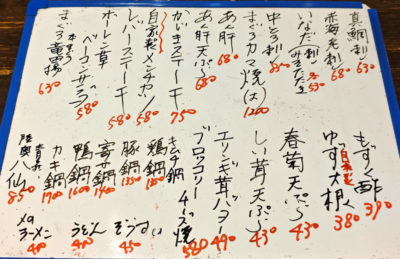 真鯛刺し 630
赤海老刺し 680
いなだ刺し 各530
中とろ刺し
まぐろカマ焼(大) 1200
あん肝 680
あん肝天ぷら 680
かいきステーキ 750
自家製メンチカツ 580
レバーステーキ 680
ホーレン草ベーコンサラダ 580
本まぐろ
まぐろ竜田揚 630
もずく酢 390
自家製
ゆず大根 380
春菊天ぷら 430
しい茸天ぷら 430
エリンギ茸バター 490
ブロッコリーチーズ焼 580
キムチ鍋
鶏鍋 1350
豚鍋 1350
寄せ鍋 1400
鴨鍋 1600
カキ鍋 1700
ぞうすい 450
うどん 400
〆のラーメン 400
陸奥八仙 850